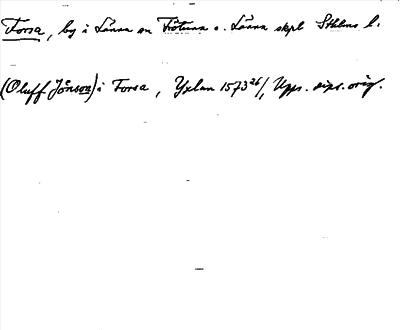 Forsa, by i Länna sn Frötuna o. Länna skpl Sthlms l.
(Oluff Jönson) i Forsa, Yxlan 1573 26/, Upps. dipl. orig.